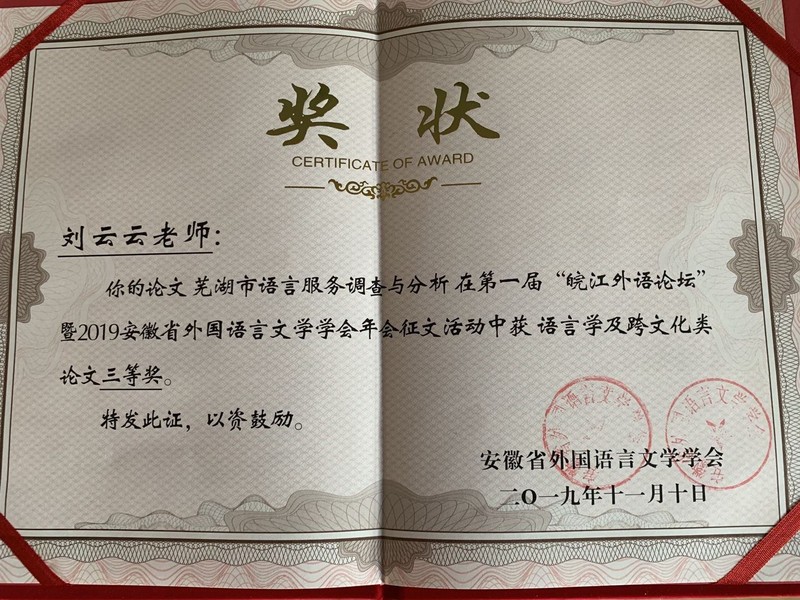 奖 状
CERTIFICATE OF AWARD
刘云云老师：
你的论文 芜湖市语言服务调查与分析 在第一届“皖江外语论坛”
暨2019安徽省外国语言文学学会年会征文活动中获 语言学及跨文化类
论文三等奖。
特发此证，以资鼓励。
安徽省外国语言文学学会
二〇一九年十一月十日